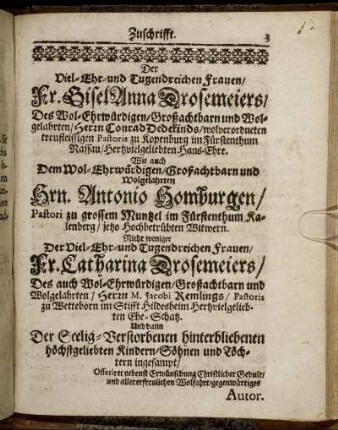 Zuschrifft. 3
Der
Viel-Ehr-und Tugendreichen Frauen/
Fr. Gisel Anna Drosemeiers/
Des Wol-Ehrwürdigen/Großachtbarn und Wol-
gelahrten/Herrn Conrad Dedekinds/wolverordneten
treufleissigen Pastoris zu Kopenburg im Fürstenthum
Nassau/Hertzvielgeliebten Haus-Ehre.
Wie auch
Dem Wol-Ehrwürdigen/Großachtbarn und
Wolgelahrten
Hrn. Antonio Homburgen/
Pastori zu grossem Muntzel im Fürstenthum Ka-
lenberg/jetzo Hochbetrübten Witwern.
Nicht weniger
Der Viel-Ehr-und Tugendreichen Frauen/
Fr. Catharina Drosemeiers/
Des auch Wol-Ehrwürdigen/Großachtbarn und
Wolgelahrten/Herrn M. Jacobi Remlings/Pastoris
zu Wetteborn im Stifft Hildesheim Hertzvielgelieb-
ten Ehe-Schatz.
Und dann
Der Seelig-Verstorbenen hinterbliebenen
höchstgeliebten Kindern/Söhnen und Töch-
tern ingesampt/
Offeriret nebenst Erwünschung Christlicher Gedult/
und aller erfreulichen Wolfahrt/gegenwärtiges
Autor.